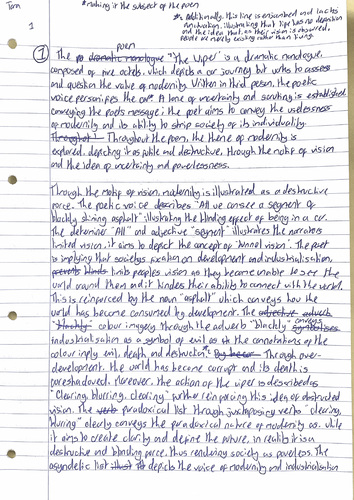 Tom
* making it the subject of the poem
1
* Additionally, this line is enjambed and lacks
punctuation, illustrating that life has no
and the idea that, as their vision is obscured,
people are merely existing rather than living
poem
1 The dramatic monologue "The Wiper" is a dramatic monologue,
composed of five octets, which depicts a car journey but works to assess
and question the value of modernity. Written in third person, the poetic
voice personifies the car*. A tone of uncertainty and scrutiny is established
conveying the poets message; the poet aims to convey the uselessness
of modernity and its ability to strip society of its individuality.
Throughout Throughout the poem, the theme of modernity is
explored, depicting it as futile and destructive, through the motif of vision
and the idea of uncertainty and powerlessness.
Through the motif of vision, modernity is illustrated as a destructive
force. The poetic voice describes "All we can see a segment of
blackly shining asphalt" illustrating the blinding effect of being in a car.
The determiner "All" and adjective "segment" illustrates the narrators
limited vision, it aims to depict the concept of 'tunnel vision'. The poet
is implying that societys fixation on development and industrialisation,
prevents blinds limits peoples vision as they become unable to see the
world around them and it hinders their ability to connect with the world.
This is reinforced by the noun "asphalt" which conveys how the
world has become consumed by development. The adjective adverb
"blackly" colour imagery through the adverb "blackly" conveys symbolises
industrialisation as a symbol of evil as the connotations of the
colour imply evil, death and destruction.* Through over-
development, the world has become corrupt and its death is
foreshadowed. Moreover, the action of the wiper is described as
"Clearing, blurring, clearing" further reinforcing this idea of obstructed
vision. The verb paradoxical list through juxtaposing verbs "clearing,
blurring" clearly conveys the paradoxical nature of modernity as while
it aims to create clarity and define the future, in reality it is a
destructive and blinding force, thus rendering society as powerless. The
asyndetic list depicts the voice of modernity and industrialisation